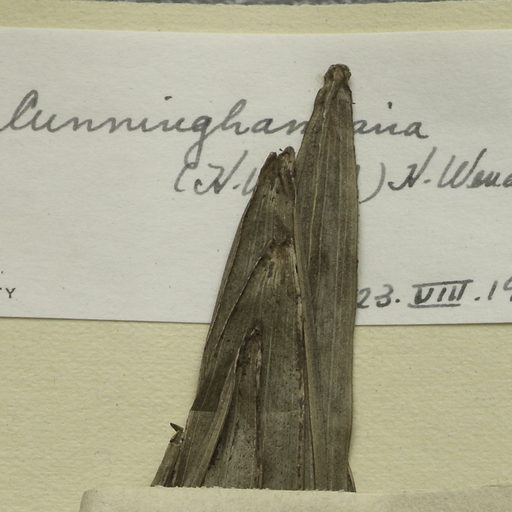 Cunninghamiana
(H. ) H. Wend
TY
23. VIII. 19